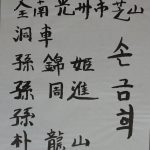 全南光州市芝山
洞車
孫錦姬
孫周進
孫
朴龍山
손금희